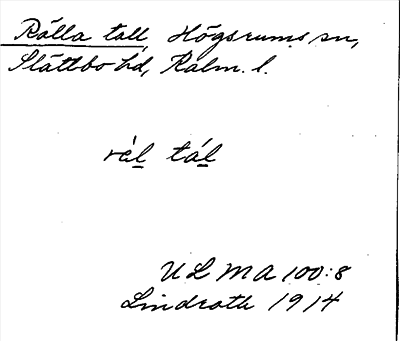 Rälla tall, Högsrums sn,
Slättbo hd, Kalm. l.
ràl tál
ULMA 100:8
Lindroth 1914